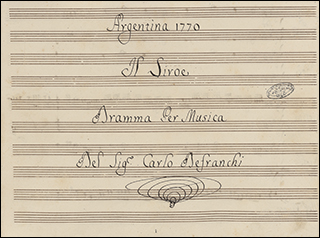 Argentina 1770
Il Siroe
Dramma Per Musica
Del Sigr. Carlo Defranchi
1